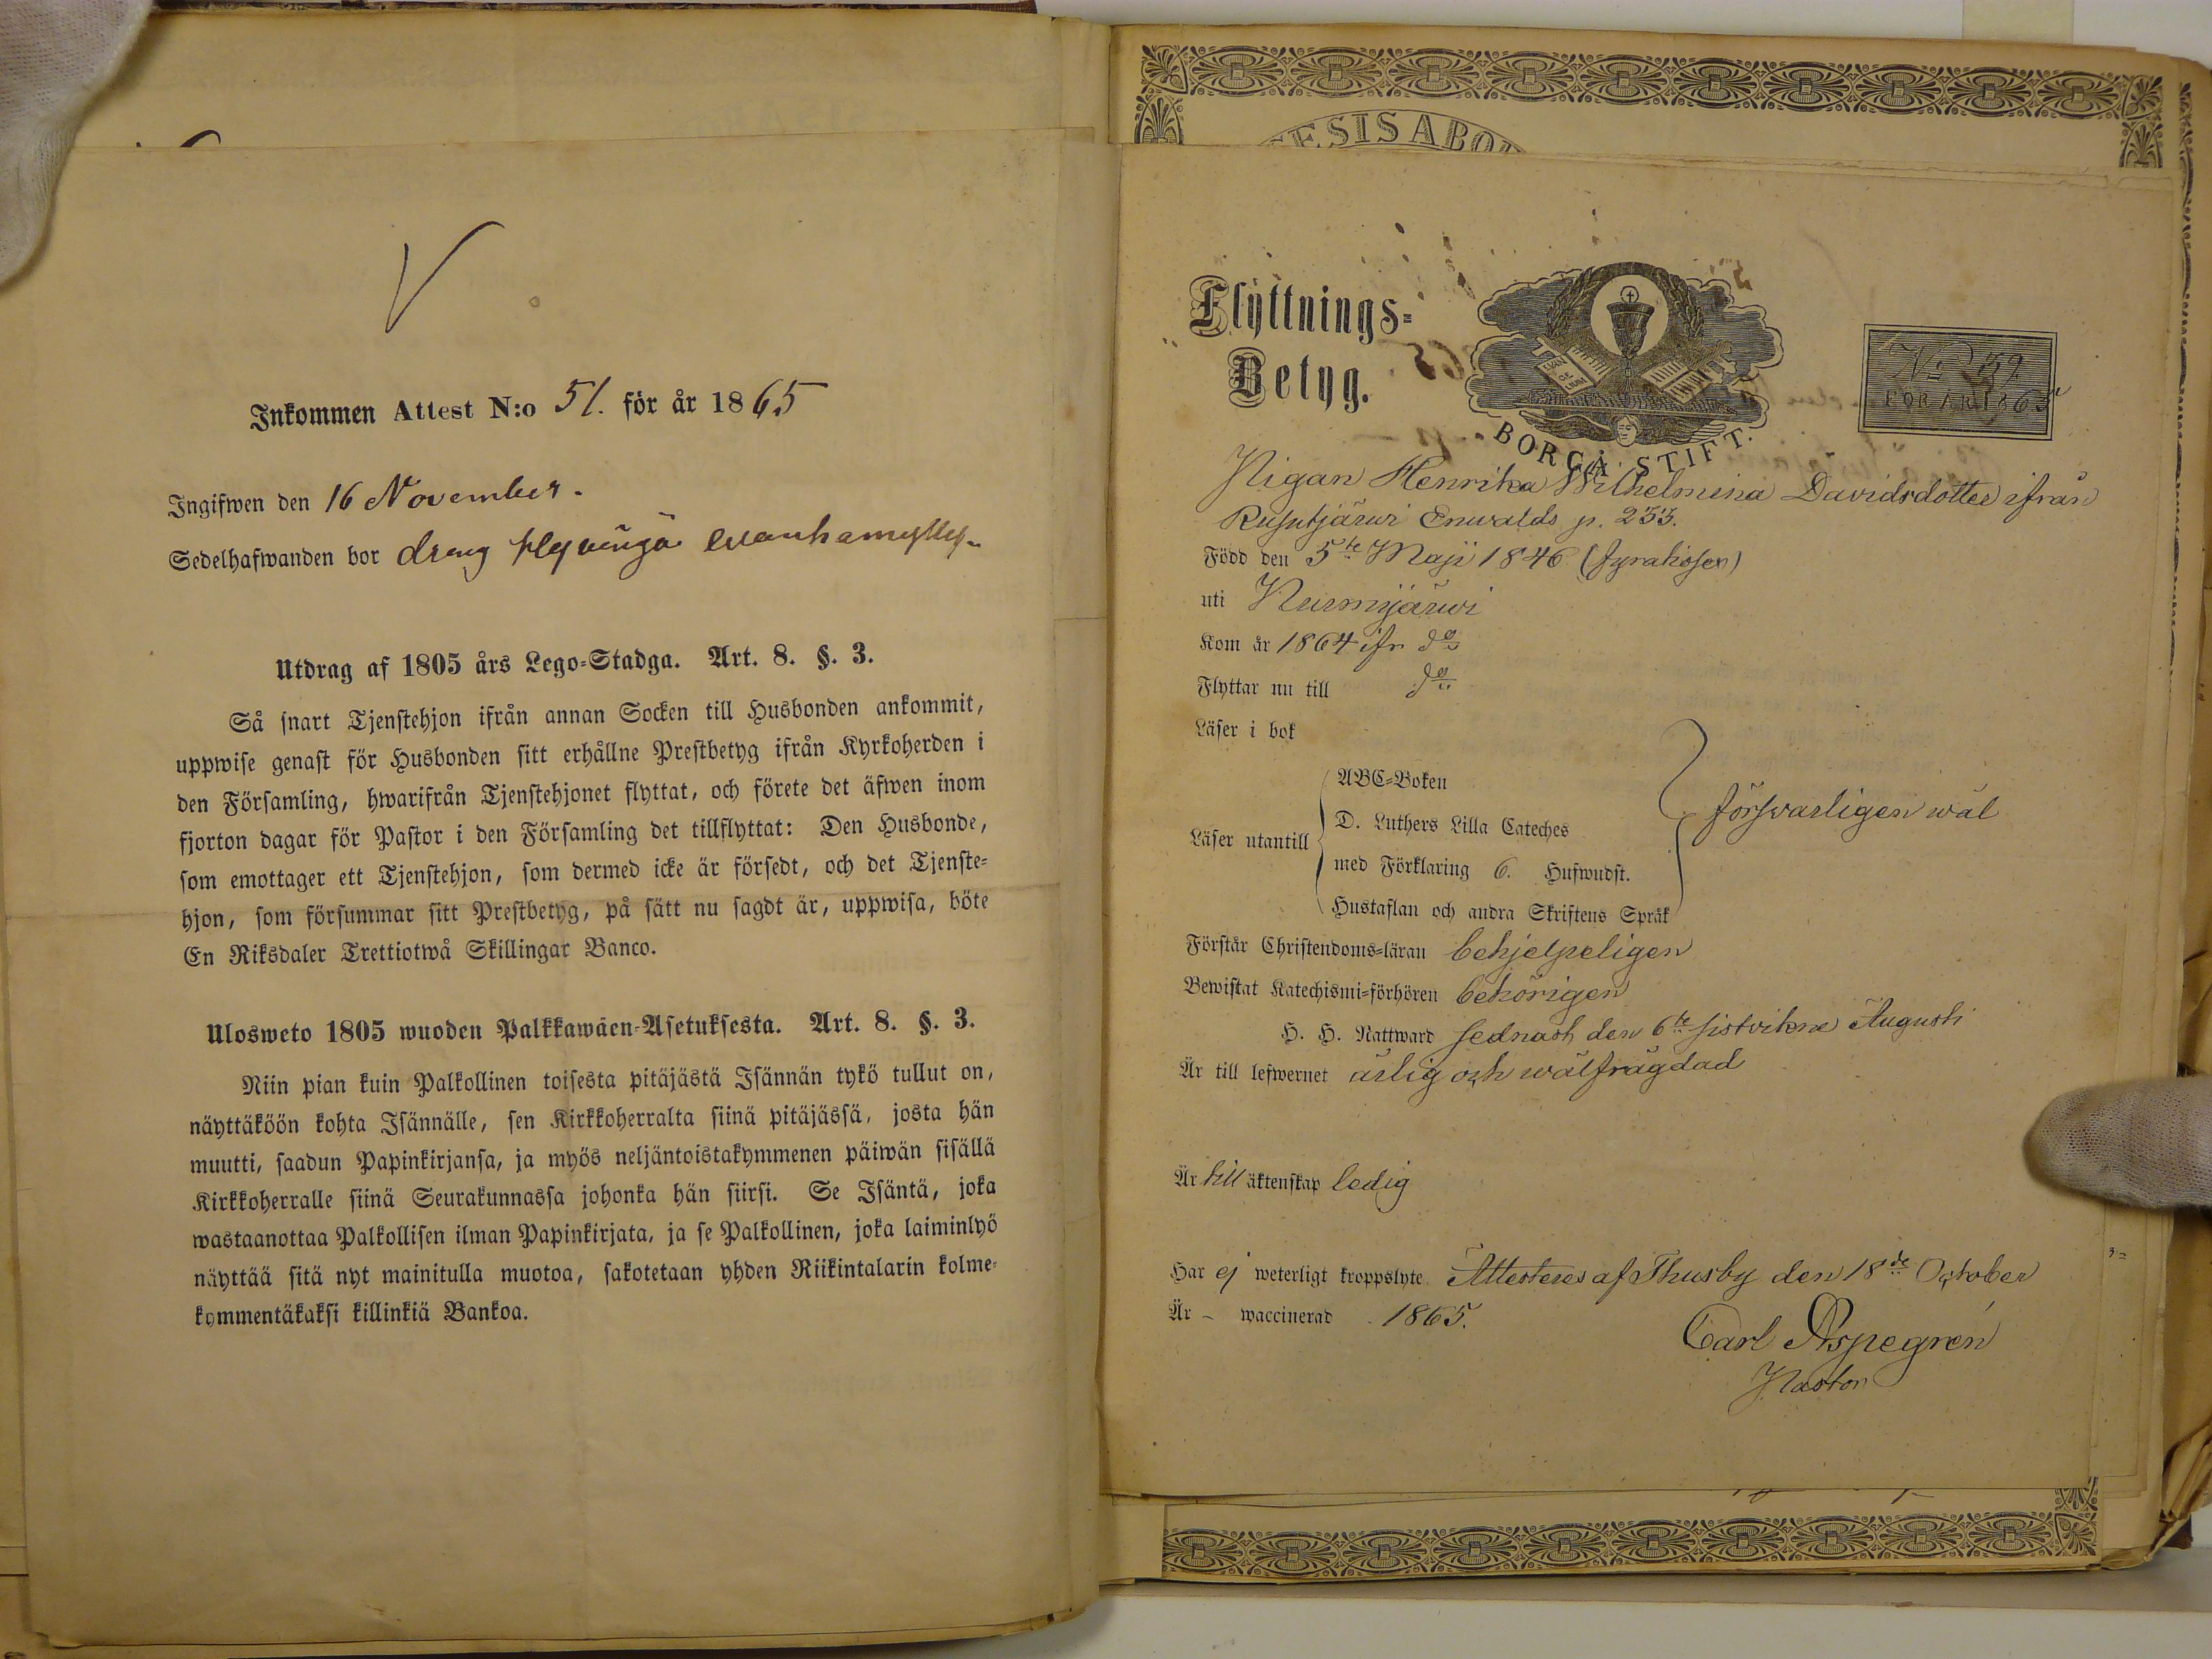 Inkommen Attest N:o 51. för år 1865
Ingifwen den 16 November.
Sedelhafwanden bor dreng Hyvinge wanhamylly
Utdrag af 1805 års Lego-Stadga. Art. 8. §. 3.
Så snart Tjenstehjon ifrån annan Socken till Husbonden ankommit,
uppwise genast för Husbonden sitt erhållne Prestbetyg ifrån Kyrkoherden i
den Församling, hwarifrån Tjenstehjonet flyttat, och förete det äfwen inom
fjorton dagar för Pastor i den Församling det tillflyttat: Den Husbonde,
som emottager ett Tjenstehjon, som dermed icke är försedt, och det Tjenste-
hjon, som försummar sitt Prestbetyg, på sätt nu sagdt är, uppwisa, böte
En Riksdaler Trettiotwå Skillingar Banco.
Ulosweto 1805 wuoden Palkkawäen-Asetuksesta. Art. 8. §. 3.
Niin pian kuin Palkollinen toisesta pitäjästä Isännän tykö tullut on,
näyttäköön kohta Isännälle, sen Kirkkoherralta siinä pitäjässä, josta hän
muutti, saadun Papinkirjansa, ja myös neljäntoistakymmenen päiwän sisällä
Kirkkoherralle siinä Seurakunnassa johonka hän siirsi. Se Isäntä, joka
wastaanottaa Palkollisen ilman Papinkirjata, ja se Palkollinen, joka laiminlyö
näyttää sitä nyt mainitulla muotoa, sakotetaan yhden Riikintalarin kolme-
kymmentäkaksi killinkiä Bankoa.
ESIS ABO
Flyttnings-
Betyg.
BORGÅ STIFT.
FÖR ÅR 1865
Pigan Henrika Wilhelmina Davidsdotter ifrån
Rusutjärwi Enwalds p. 233.
Född den 5te Maji 1846
uti Nurmijärwi
Kom år 1864 ifr do
Flyttar nu till do
Läser i bok
Läser utantill
ABC-Boken
D. Luthers Lilla Cateches
med Förklaring 6. Hufwudst.
Hustaflan och andra Skriftens Språk
försvarligen wäl
Förstår Christendoms-läran behjelpeligen
Bewistat Katechismi-förhören behörigen
H. H. Nattward sednast den 6te sistvikne Augusti
Är till lefwernet ärlig och wälfrägdad
Är till äktenskap ledig
Har ej weterligt kroppslyte Attesteres af Thusby den 18de October
Är - waccinerad 1865.
Carl Aspegrén
Pastor